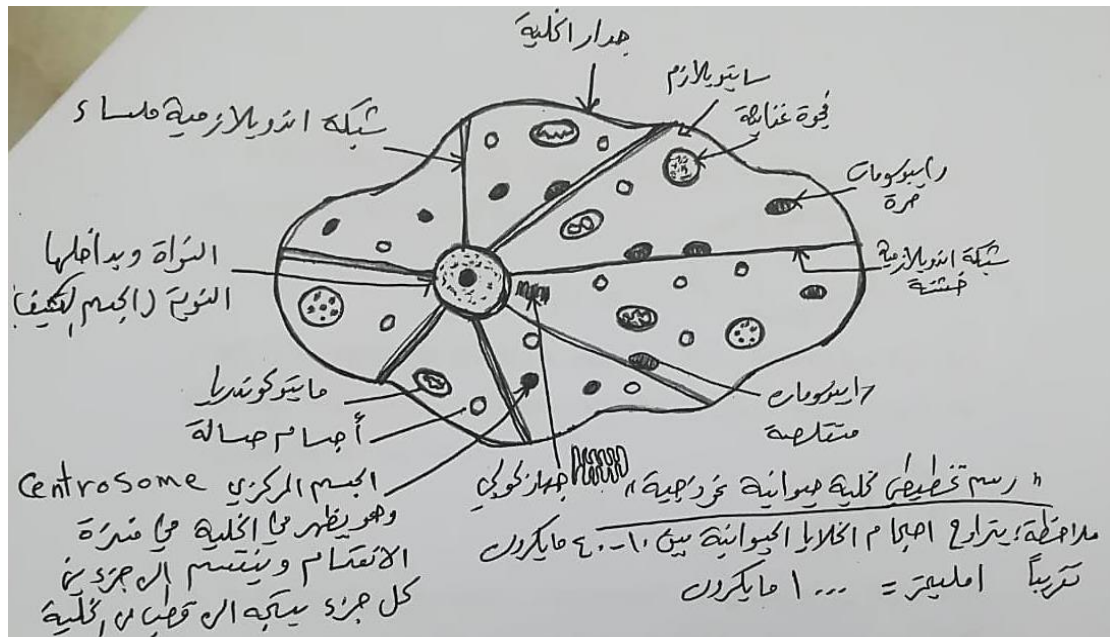 جدار الخلية
سايتوبلازم
شبكة اندوبلازمية ملساء
فجوة غذائية
رايبوسومات
حرة
شبكة اندوبلازمية
خشنة
النواة وبداخلها
النوية (الجسم الكثيف)
مايتوكوندريا
أجسام حالة
رايبوسومات
متقلصة
الجسم المركزي Centrosome
وهو يظهر في الخلية في فترة
الانقسام وينقسم الى جزءين
كل جزء يتجه الى قطب من الخلية
جهاز كولجي
"رسم تخطيطي لخلية حيوانية نموذجية"
ملاحظة: يتراوح احجام الخلايا الحيوانية بين ١٠-٤٠ مايكرون
تقريباً ١ مليمتر = ١٠٠٠ مايكرون